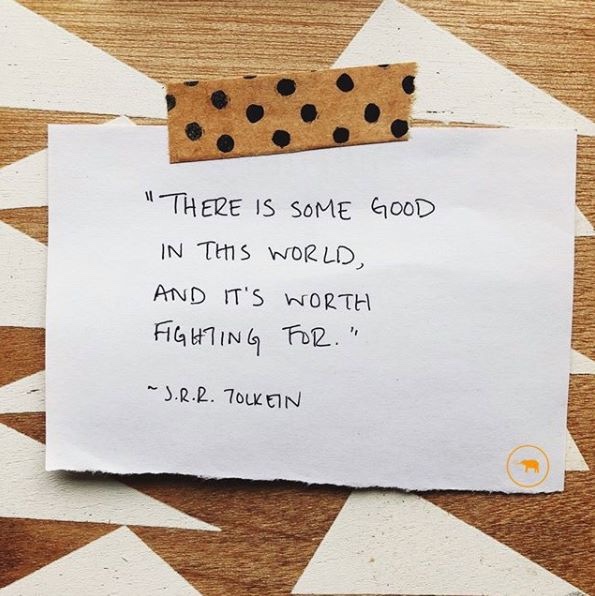 "THERE IS SOME GOOD
IN THIS WORLD,
AND IT'S WORTH
FIGHTING FOR."
~J.R.R. TOLKEIN